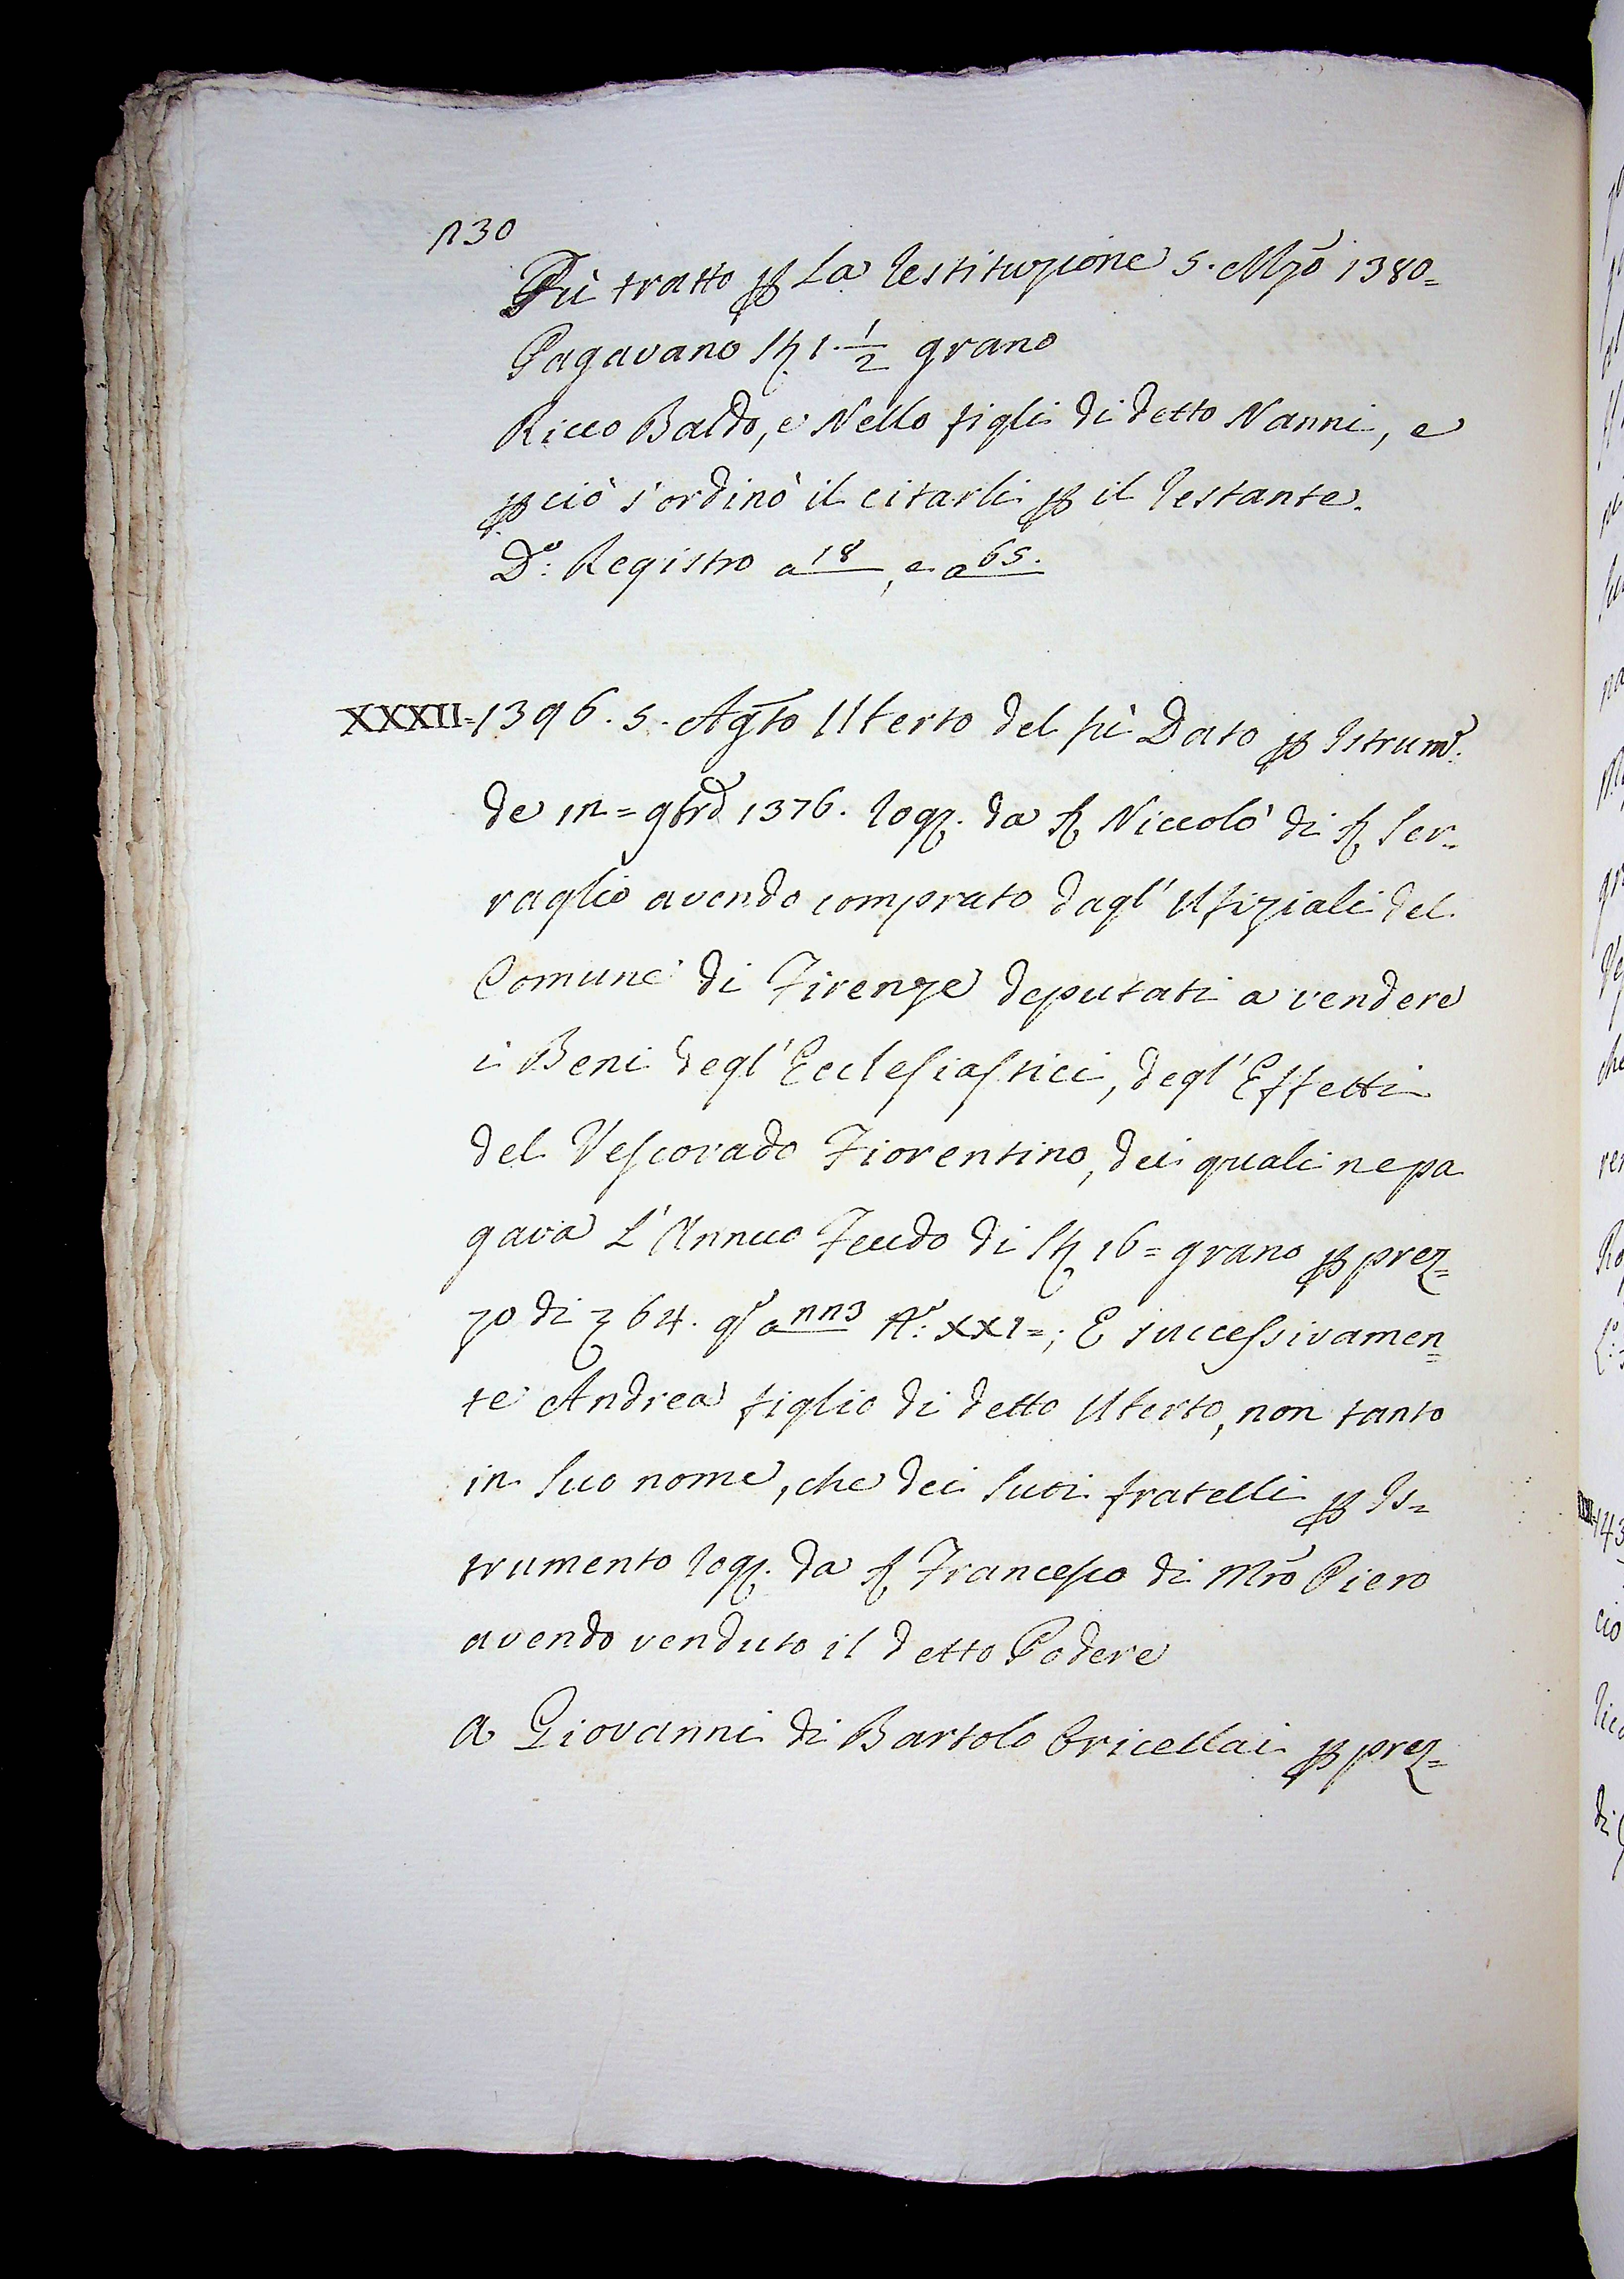 230
Fù tratto p la restituzione 5. Mzo 1380=
Pagavano st. 1. 1/2 grano
Ricco Baldo, e Nello figli di detto Nanni, e
pciò s'ordinò il citarli p il restante.
Do: Registro a 18, e a 65.
XXXII=1396. 5. Agto Uberto del fù Dato p Istrumo.
de 12= 9bre 1376. rog. da S. Niccolò di S. Ser=
raglio avendo comprato dagl' Ufiziali del
Comune di Firenze deputati a vendere
i Beni degl' Ecclesiastici, degl' Effetti
del Vescovado Fiorentino, dei quali ne pa
gava L'Annuo Feudo di st. 16= grano p prez=
zo di 64. qs a 223 No: XXI=; E successivamen=
te Andrea figlio di detto Uberto, non tanto
in suo nome, che dei suoi fratelli p Is=
trumento rog. da S. Francesco di Mro Piero
avendo venduto il detto Podere
a Giovanni di Bartolo Oricellai p prez=